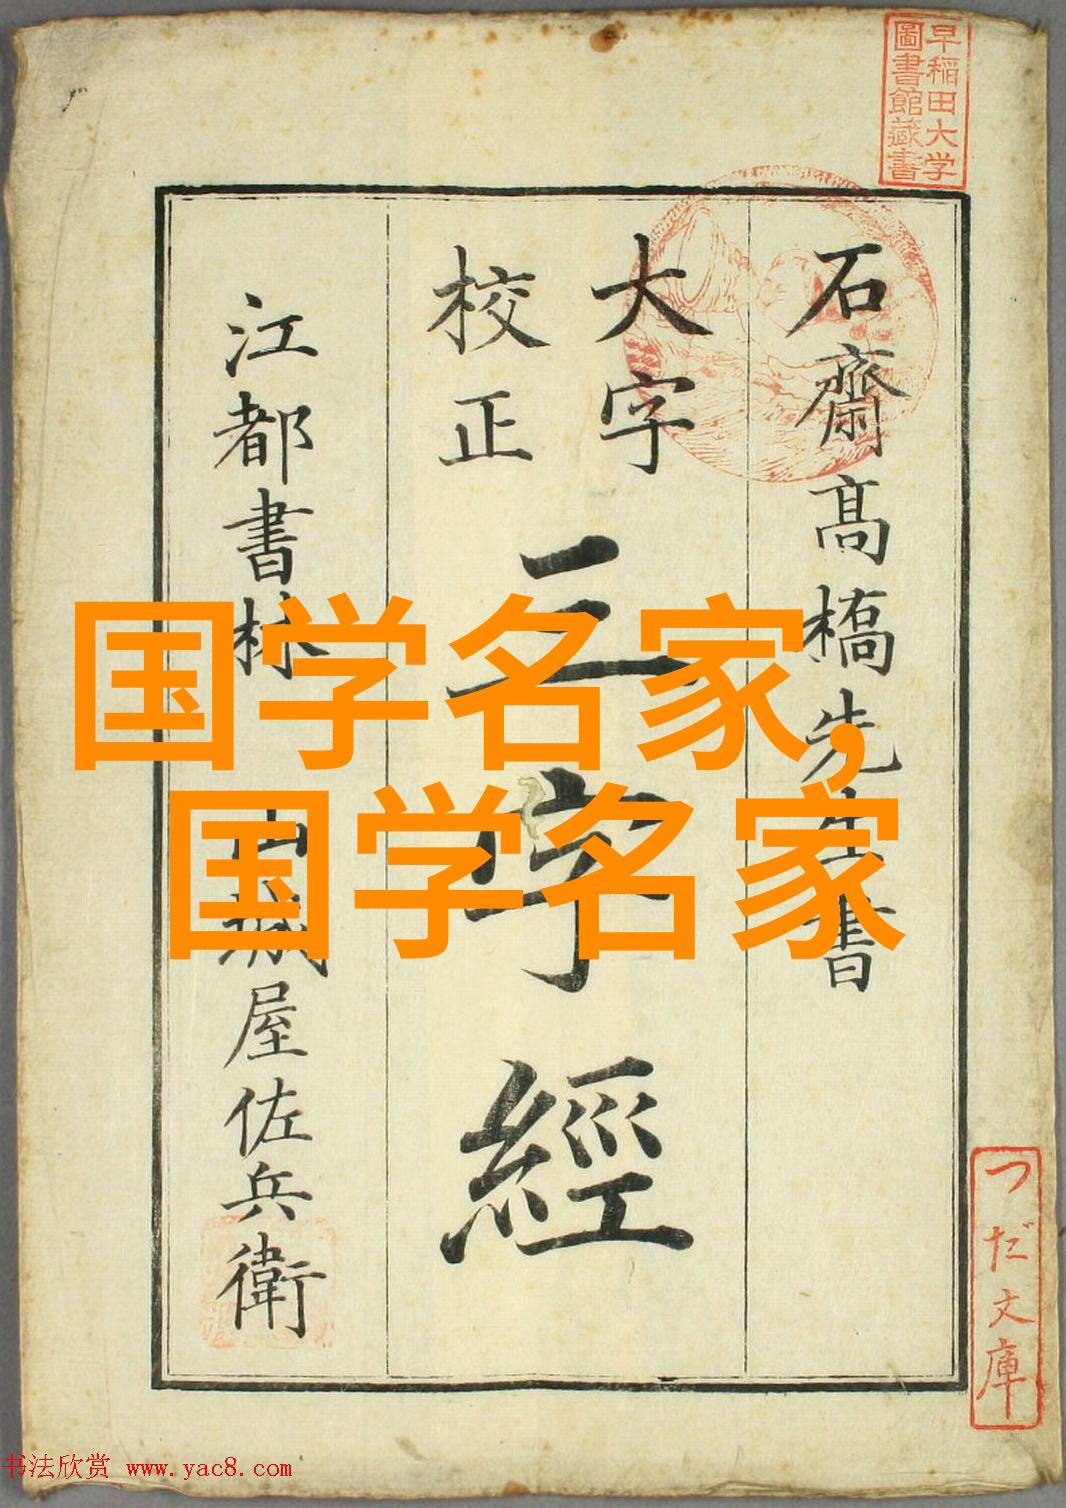 早稲田大学
圖書館藏書
石齋高橋先生書
大字
校正
三字經
江都書林 山城屋佐兵衛
国学名家,
国学名家
つだ文庫
书法欣赏 www.yac8.com